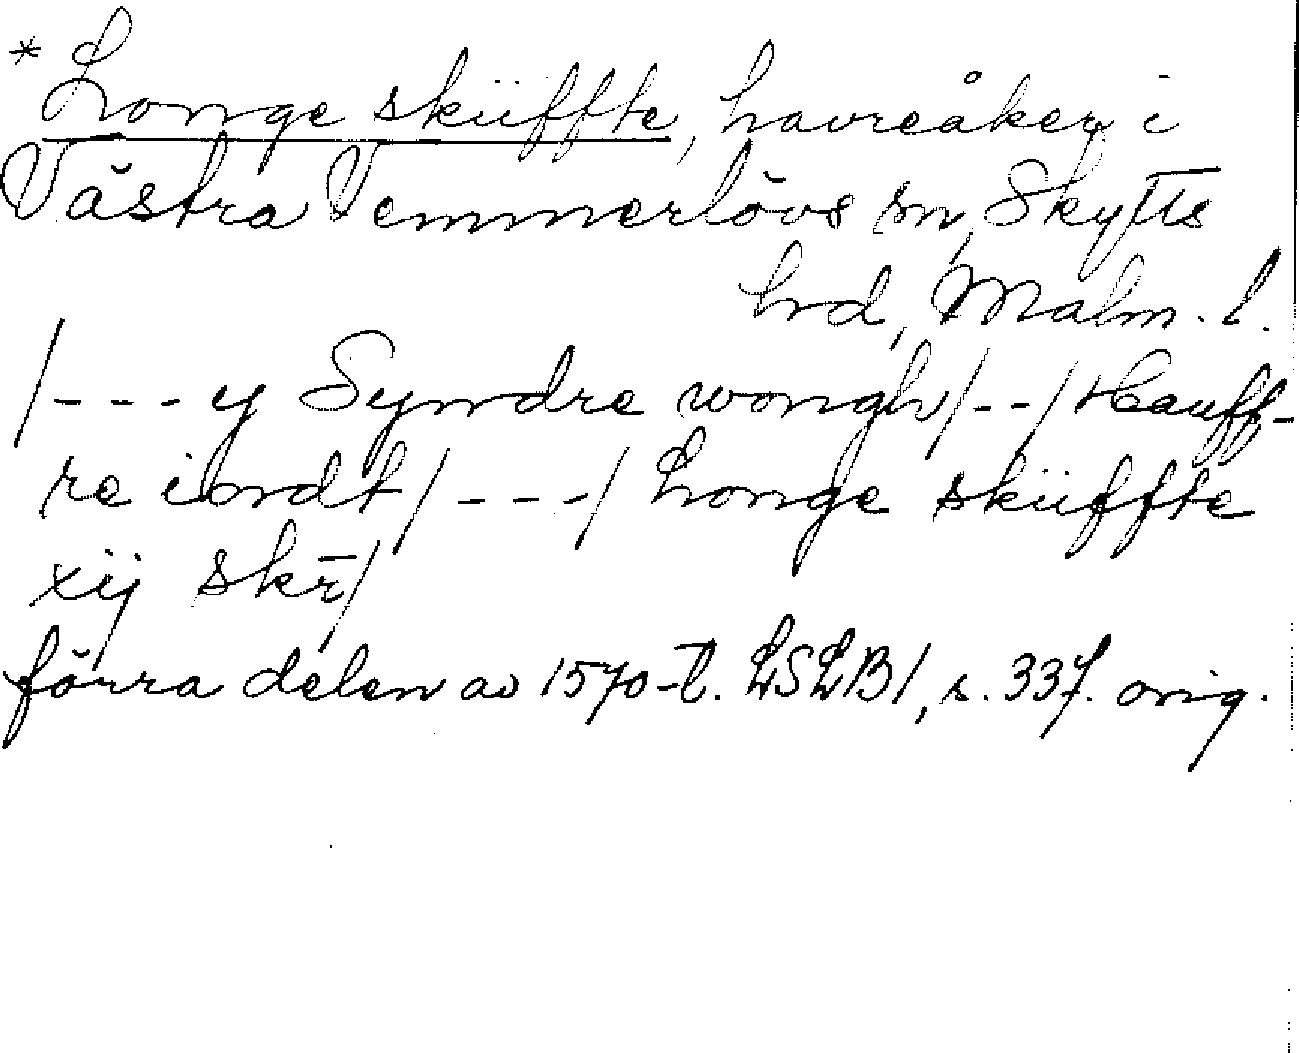 * Longe sküffte, havreåker i
Västra Vemmerlövs sn, Skytts
hrd, Malm. l.
/---y Syndre wongh/--/Hauff-
re iordt/---/Longe sküffte
xij skr̄/
förra delen av 1570-t. LSLB1, s. 337. orig.